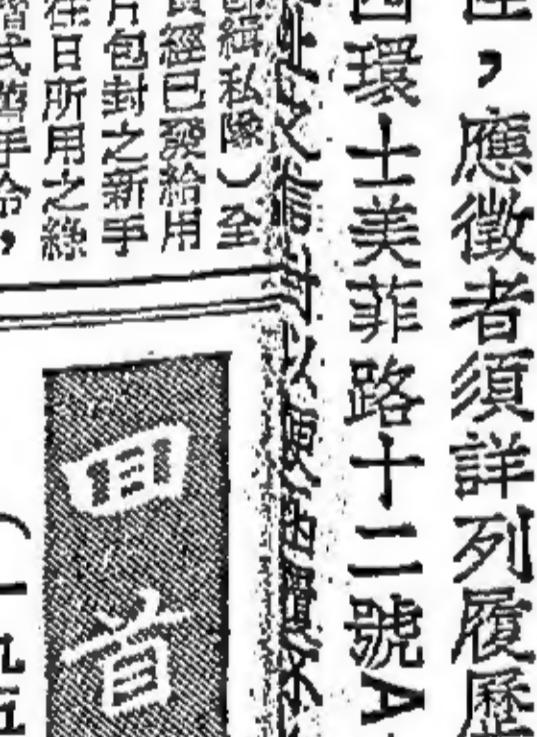 ，應徵者須詳列履歷
環士美菲路十二號A
址及信封以便
緝私隊）全
經已發給用
片包封之新手
往日所用之綠
式舊手令，
回首
（一九五